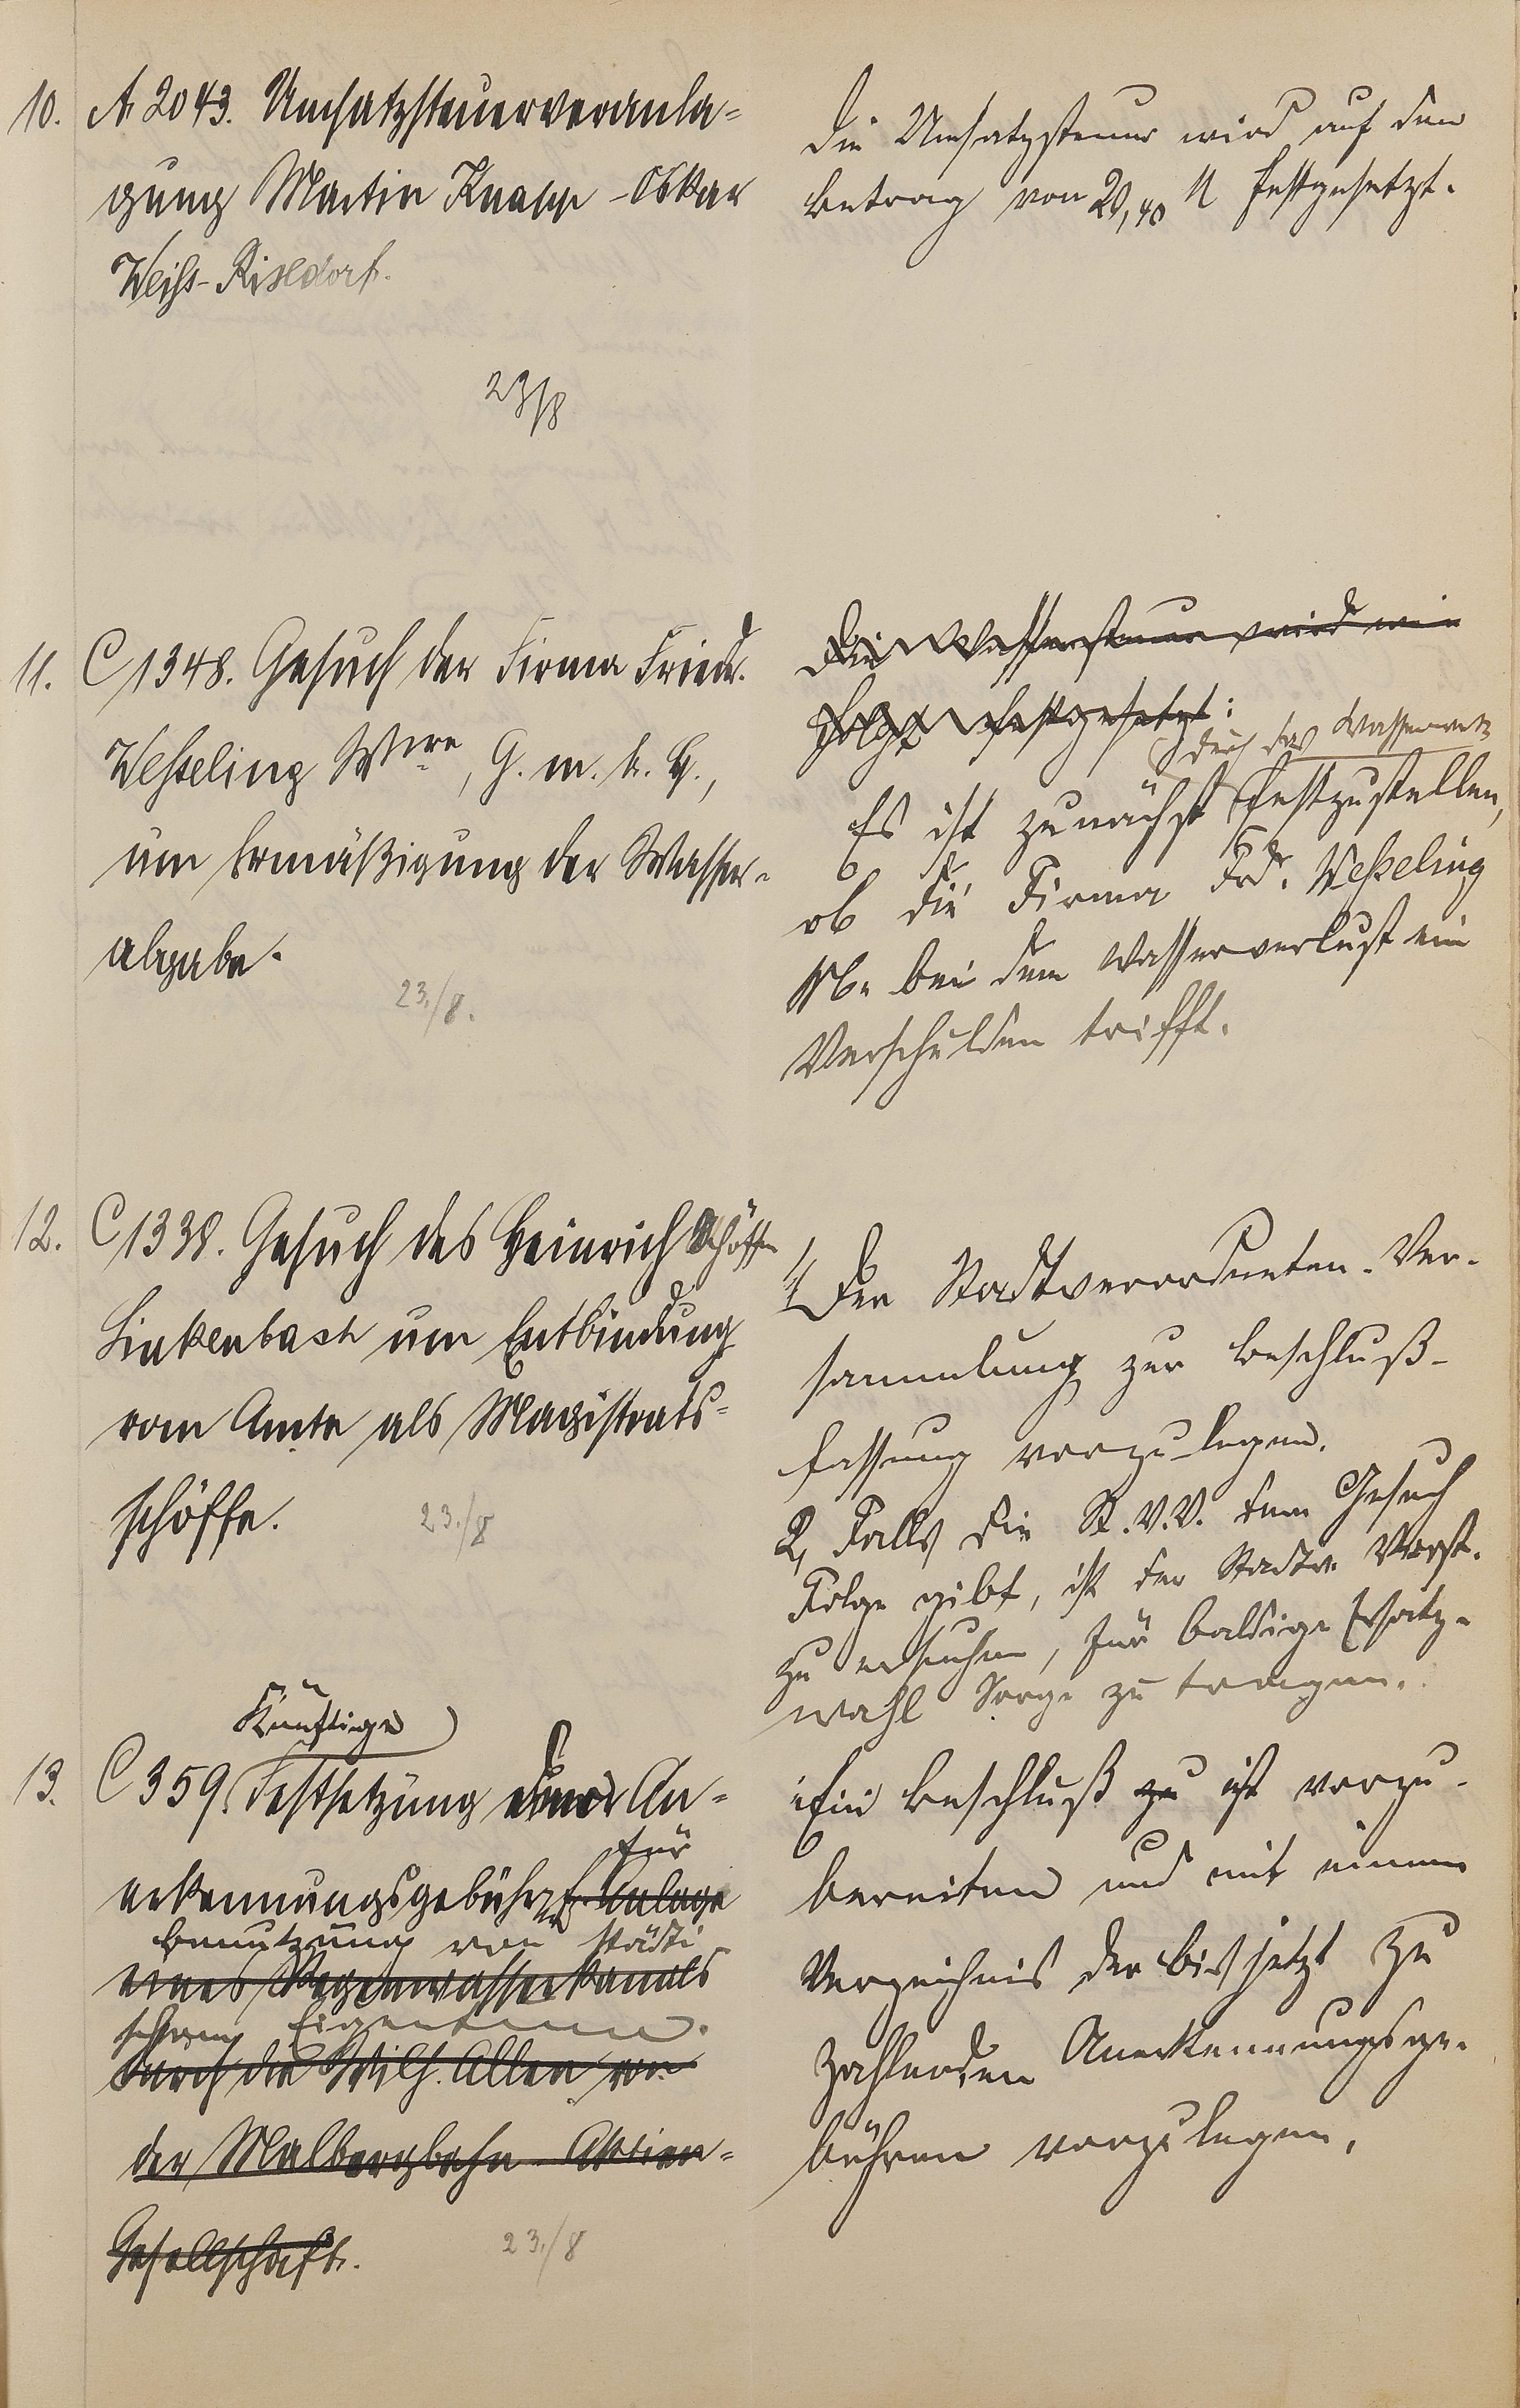 10. A 2043. Umsatzsteuerveranla=
gung Martin Knapp - Oskar
Weiß-Rixdorf.
23/8
Die Umsatzsteuer wird auf den
Betrag von 20,40 M festgesetzt.
11. C 1348. Gesuch der Firma Friedr.
Weßeling Wwe, G. m. b. H.,
um Ermäßigung der Wasser-
abgabe.
23./8.
Die Wassersteuer wird wie
folgt festgesetzt:
durch das Wasserwerk
Es ist zunächst festzustellen,
ob die Firma Frdr. Weßeling
Ww. bei dem Wasserverlust ein
Verschulden trifft.
12. C 1338. Gesuch des Heinrich Schöffen
Linkenbach um Entbindung
vom Amte als Magistrats=
schöffe.
23./8
1, Der Stadtverordneten-Ver-
sammlung zur Beschluß-
fassung vorzulegen.
2, Falls die St.V.V. dem Gesuch
Folge gibt, ist der Stadtv. Vorst.
zu ersuchen, für baldige Ersatz-
wahl Sorge zu tragen.
Künftige
13. C 359. Festsetzung einer An=
für
erkennungsgebühr f. Anlage
Benutzung von städti-
eines Regenwasserkanals
schem Eigentum.
durch die Wilh. Allee von
der Malbergbahn-Aktien=
Gesellschaft.
23./8
Ein Beschluß zu ist vorzu-
bereiten und mit einem
Verzeichnis der bis jetzt zu
zahlenden Anerkennungsge-
bühren vorzulegen.